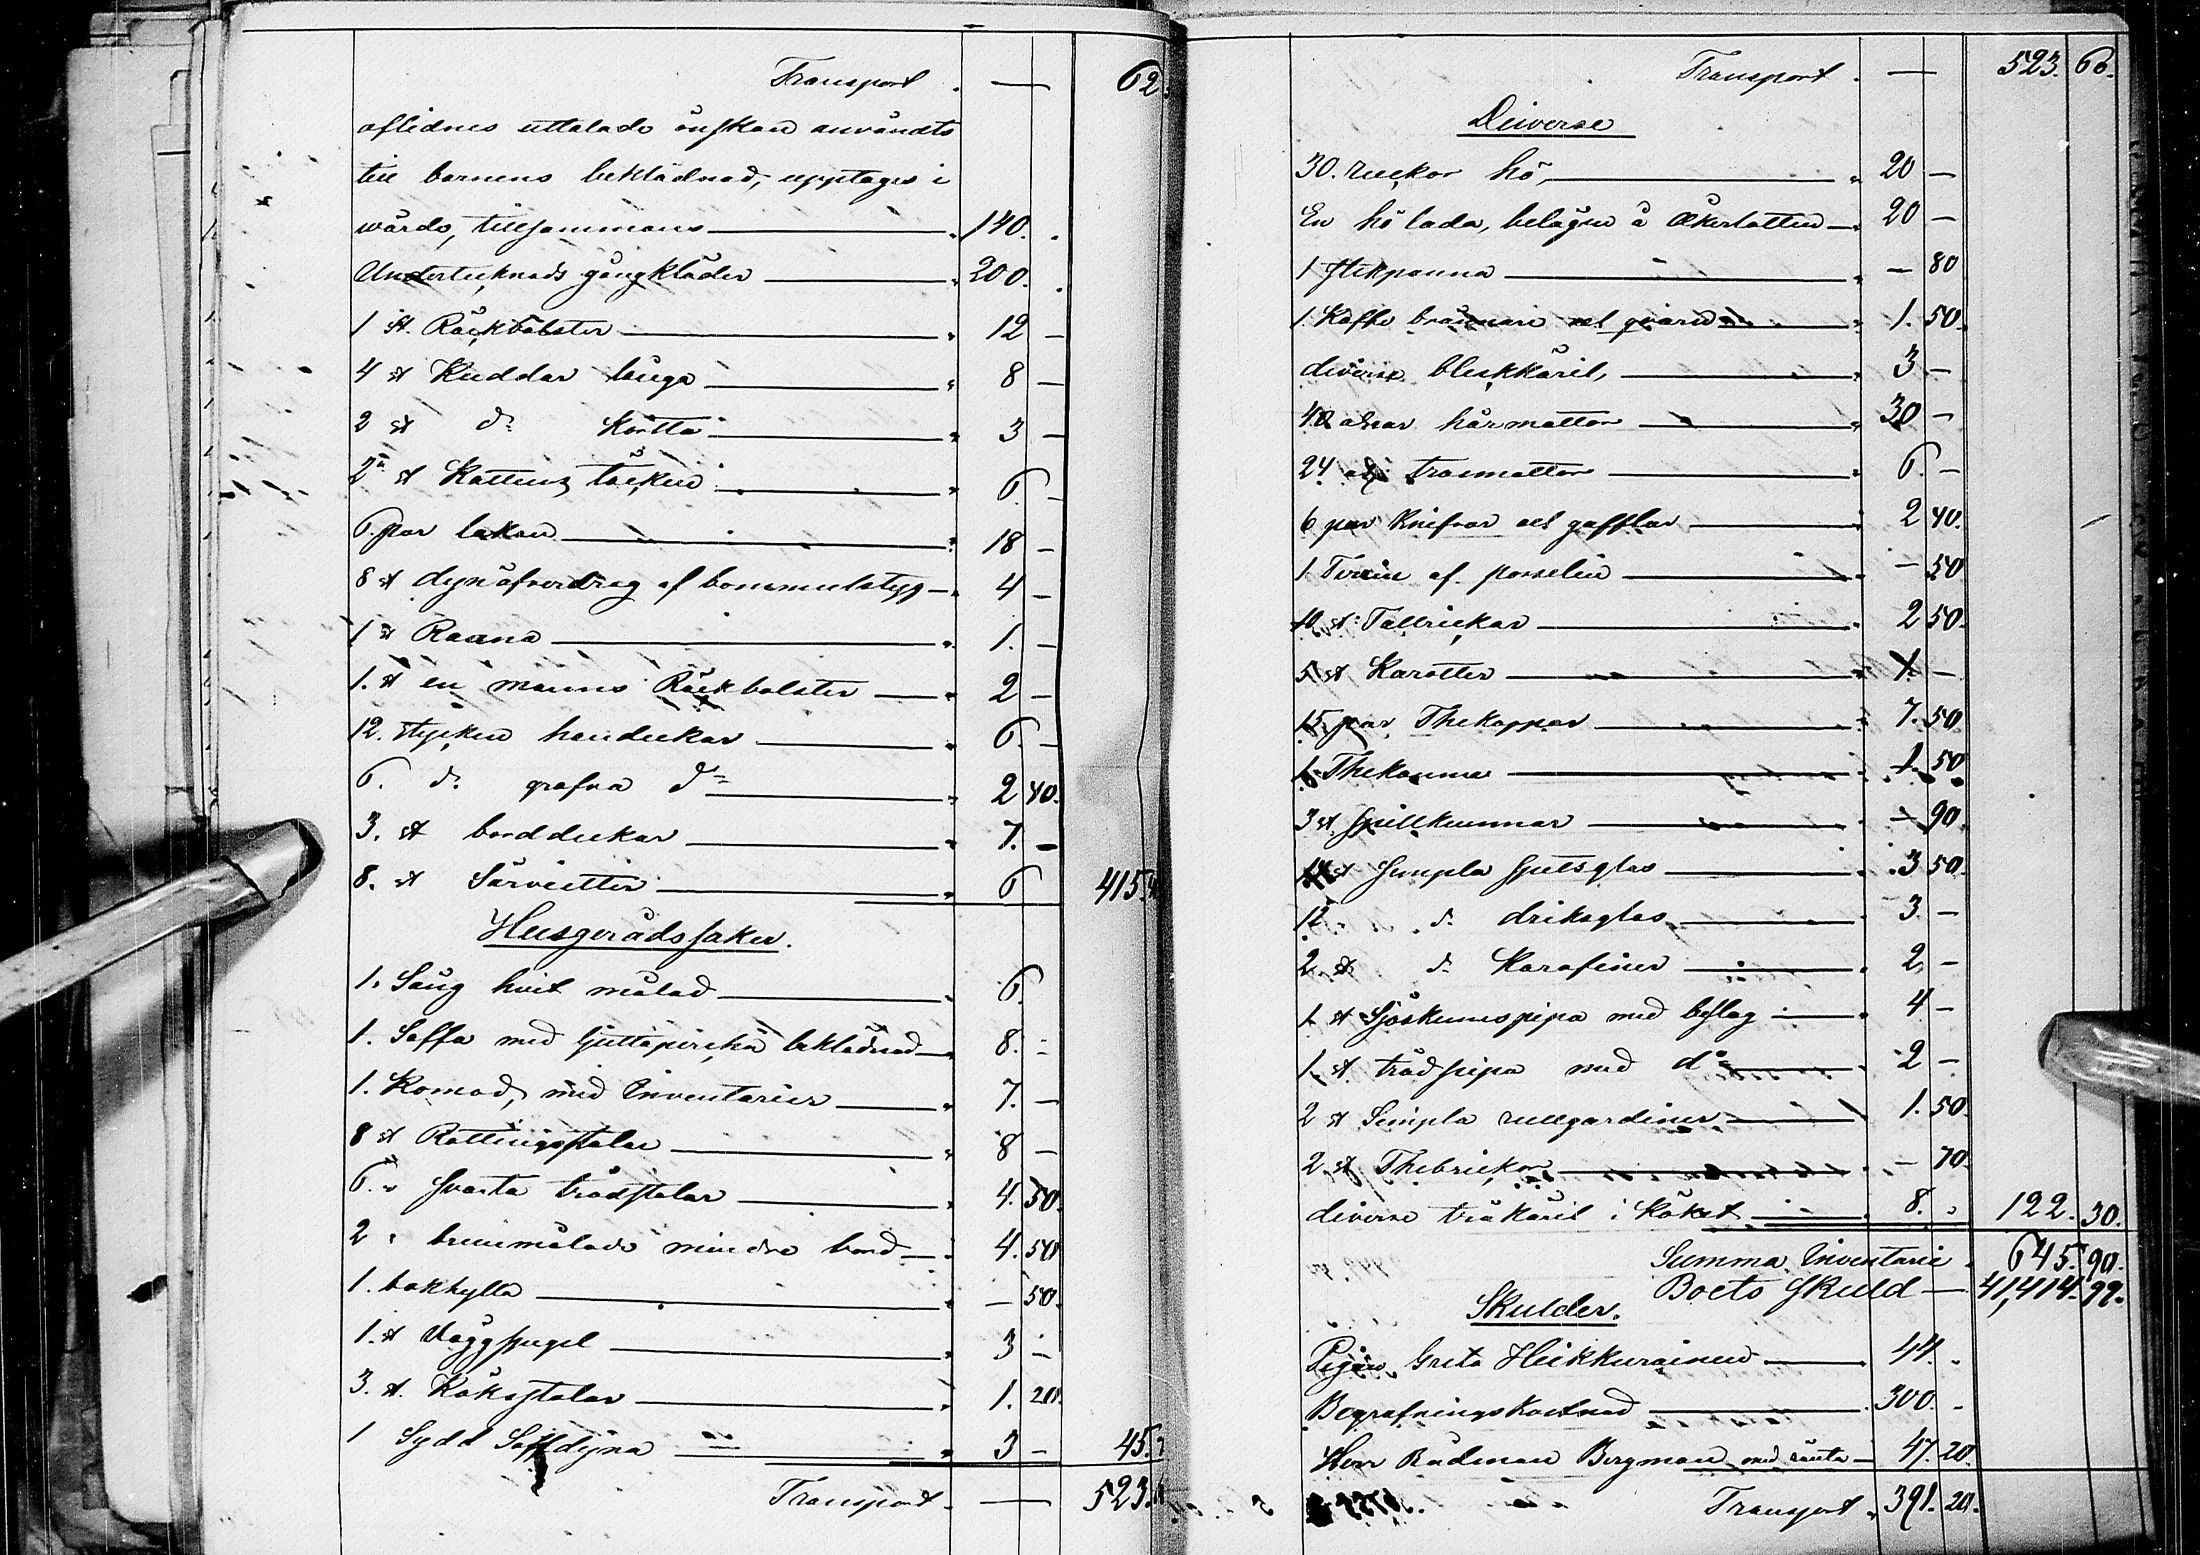 Transport . — 62.
aflidnes uttalade önskan användts
till barnens beklädnad, upptages i
wärde, tillsammans — 140.
Undertecknads gångkläder — 200.
1 st. Räckbolster — 12 —
4 st Kuddar långa — 8 —
2 st d:o Kortta — 3 —
2 st Kattuns täcken — 6 —
6 par lakan — 18 —
8 st dynöfverdrag af bommulstyg — 4 —
1 st Raana — 1. —
1. st en manns Räckbolster — 2 —
12. stycken handukar — 6. —
6. d:o grofva d:o — 2 40.
3. st borddukar — 7. —
8. st Särvietter — 6 415.
Husgerådssaker.
1. Säng hvit målad — 6.
1. Soffa med Guttapercha beklädnad — 8. —
1. Komod, med Inventarier — 7. —
8 st Rottingsstolar — 8 —
6. " svarta trädstolar — 4. 50.
2 " brunmålade mindre bord — 4. 50
1. bokhylla — — 50.
1. st Väggspegel — 3 —
3. st. Köksstolar — 1. 20.
1 Sydd Soffdyna — 3 — 45.
Transport . — 523.
Transport . — 523. 60.
Diverse
30. ruckor hö, — 20 —
En hö lada, belägen å Åkerlotten — 20 —
1 stekpanna — — 80
1. Kaffe brännare och qvarn — 1. 50.
diverse bleckkäril, — 3 —
40 alnar hårmattor — 30 —
24 al: trasmattor — 6. —
6 par Knifvar och gafflar — 2 40.
1 Terrin af porselin — — 50
10 st: Tallrickar — 2 50.
5 st Karotter — 1. —
15 par Thekoppar — 7. 50
1. Thekanna — 1. 50
3 st Spillkummar — — 90.
14 st Simpla spetsglas — 3 50.
12 d:o driksglas — 3 —
2 st d:o Karafiner — 2 —
1 st Sjöskumspipa med beslag — 4 —
1 st trädpipa med d:o — 2 —
2 st Simpla rullgardiner — 1. 50.
2 st Thebrickor — — 70.
diverse träkäril i Köket — 8. " 122. 30.
Summa Inventarie . 645. 90.
Boets skuld — 41,414. 99.
Skulder.
Pigan Greta Heikkurainen — 44. "
Begrafningskostnad — 300. "
Herr Rådman Bergman med ränta — 47. 20.
Transport . 391. 20.